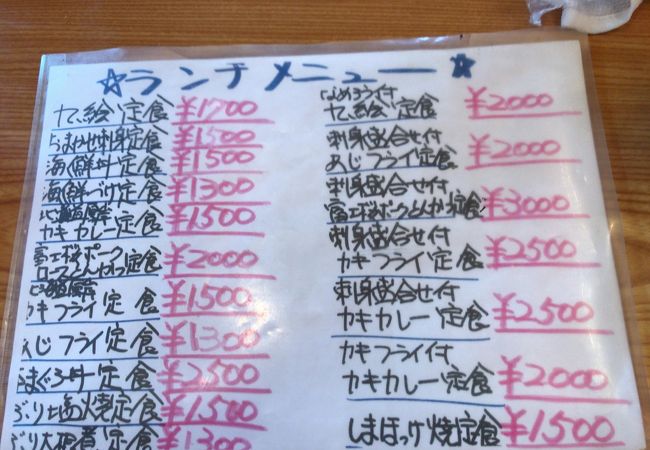 ☆ランチメニュー☆
で、絵定食 ¥1700
おまかせ刺身定食 ¥1500
海鮮丼定食 ¥1500
海鮮づけ定食 ¥1300
北海道厚岸
カキカレー定食 ¥1500
富士桜ポーク
ロースとんかつ定食 ¥2000
北海道厚岸
カキフライ定食 ¥1500
あじフライ定食 ¥1300
まぐろ丼定食 ¥2500
ぶり塩焼定食 ¥1500
ぶり大根煮定食 ¥1300
なめろう付
で、絵定食 ¥2000
刺身盛合せ付
あじフライ定食 ¥2000
刺身盛合せ付
富士桜ポークとんかつ定食 ¥3000
刺身盛合せ付
カキフライ定食 ¥2500
刺身盛合せ付
カキカレー定食 ¥2500
カキフライ付
カキカレー定食 ¥2000
しまほっけ焼定食 ¥1500